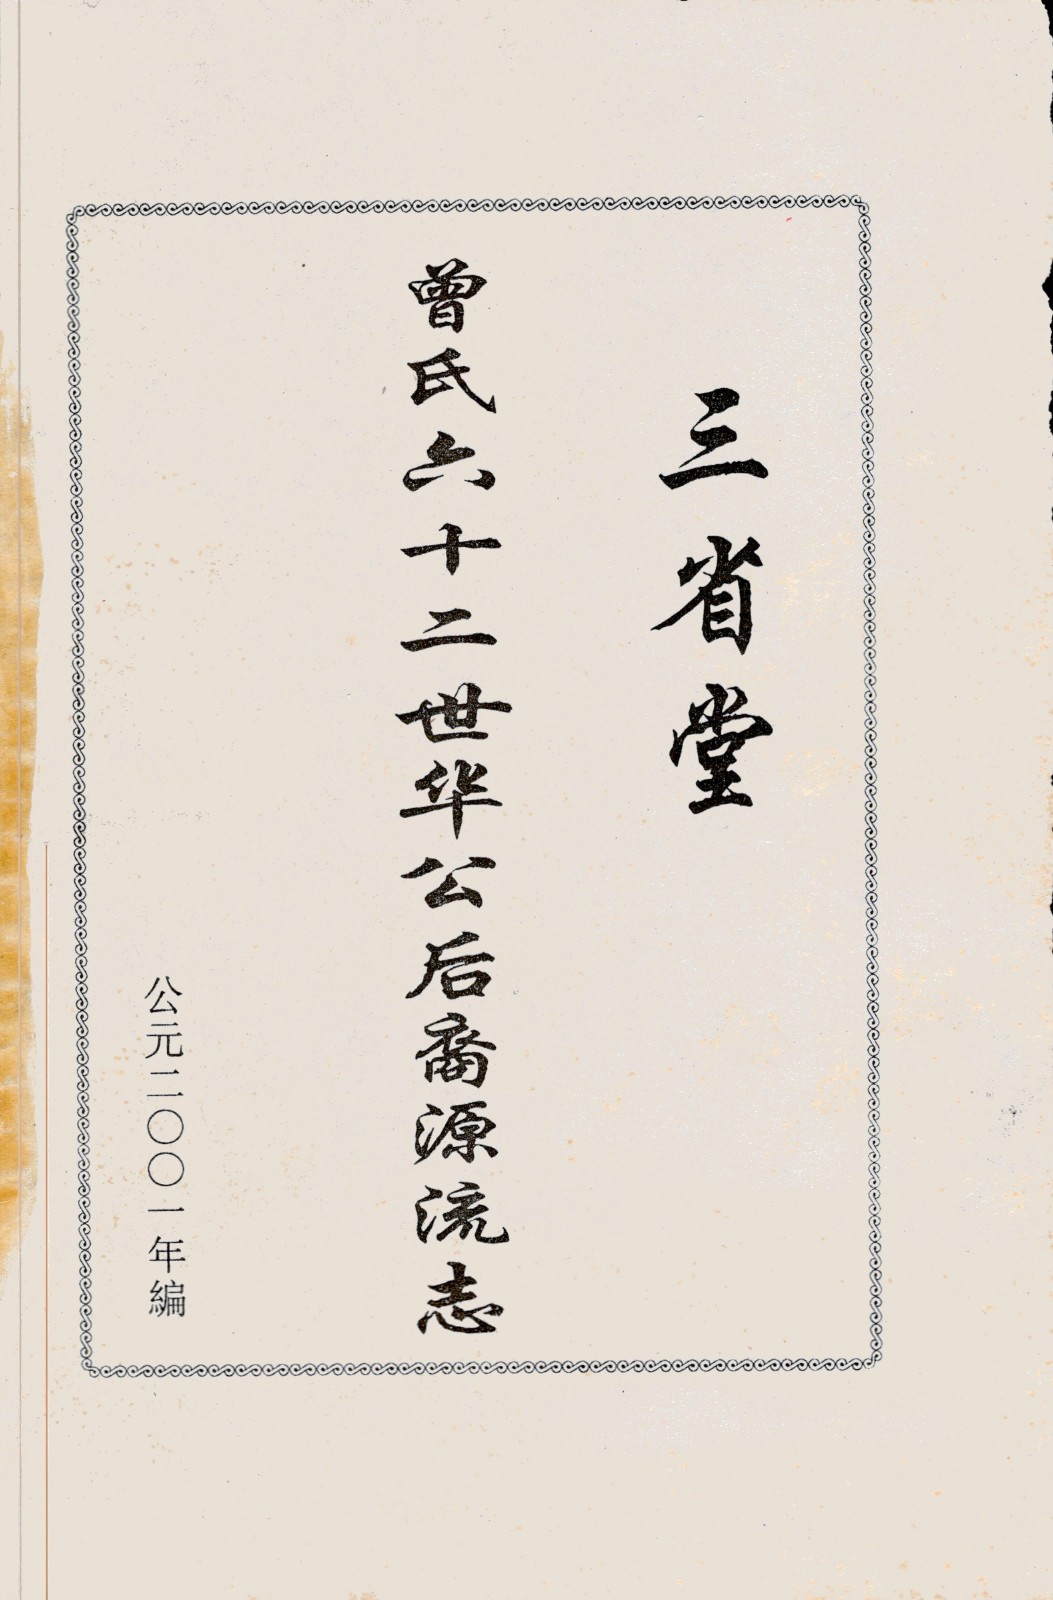 三省堂
曾氏六十二世华公后裔源流志
公元二〇〇一年編